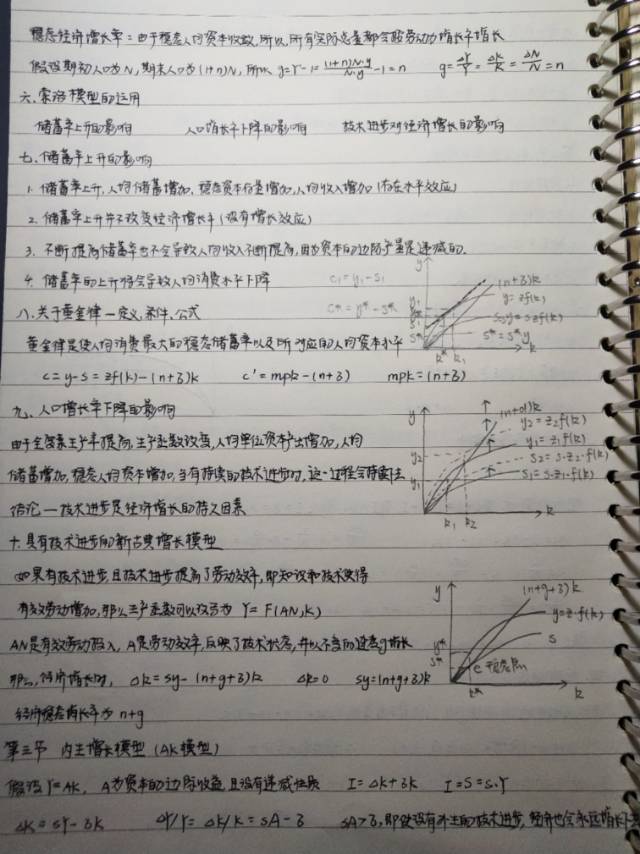 稳态经济增长率：由于稳态人均资本收敛，所以，所有实际总量都会随劳动力增长率增长
假设期初人口为N，期末人口为(1+n)N，所以 y=Y-1=\frac{(1+n)N·y}{N·y}-1=n g=\frac{ΔY}{Y}=\frac{ΔK}{K}=\frac{ΔN}{N}=n
六、索洛模型的运用
储蓄率上升的影响 人口增长率下降的影响 技术进步对经济增长的影响
七、储蓄率上升的影响
1. 储蓄率上升，人均储蓄增加，稳态资本存量增加，人均收入增加（存在水平效应）
2. 储蓄率上升并不改变经济增长率（没有增长效应）
3. 不断提高储蓄率也不会导致人均收入不断提高，因为资本的边际产量是递减的.
4. 储蓄率的上升将会导致人均消费水平下降
c₁=y₁-s₁
c*=y*-s*
y
(n+δ)k
y=zf(k)
s₀y=szf(k)
s*=s*y
y₁
y*
s₁
s*
k* k₁ k
八、关于黄金律—定义、条件、公式
黄金律是使人均消费最大的稳态储蓄率以及所对应的人均资本水平
c=y-s=zf(k)-(n+δ)k c'=mpk-(n+δ) mpk=(n+δ)
九、人口增长率下降的影响
由于全要素生产率提高，生产函数改变，人均单位资本产出增加，人均
储蓄增加，稳态人均资本增加，当有持续的技术进步时，这一过程会持续下去
结论—技术进步是经济增长的持久因素
y
(n+d)k
y₂=z₂f(k)
y₁=z₁f(k)
s₂=s·z₂·f(k)
s₁=s·z₁·f(k)
y₂
y₁
k₁ k₂ k
十、具有技术进步的新古典增长模型
如果有技术进步，且技术进步提高了劳动效率，即知识和技术使得
有效劳动增加，那么生产函数可以改写为 Y=F(AN,K)
AN是有效劳动投入，A是劳动效率，反映了技术状态，并以不变的速度g增长
那么，经济增长时， Δk=sy-(n+g+δ)k Δk=0 sy=(n+g+δ)k
经济稳态增长率为 n+g
y
(n+g+δ)k
y=z·f(k)
s
y*
s*
e 稳态点
k* k
第三节 内生增长模型（AK模型）
假设Y=AK，A为资本的边际收益，且没有递减性质 I=ΔK+δK I=S=s·Y
ΔK=sY-δK ΔY/Y=ΔK/K=sA-δ sA>δ，即使没有外生的技术进步，经济也会永远增长下去